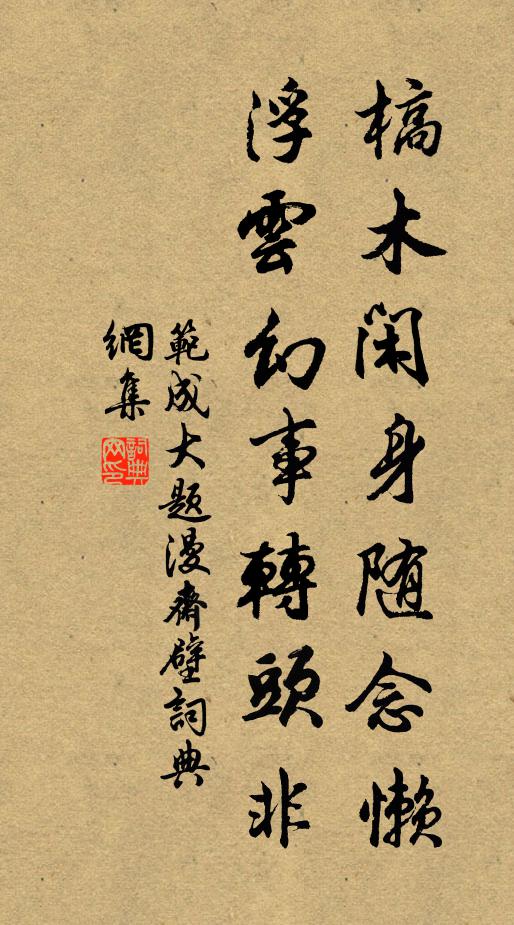 槁木閑身随念懶
浮雲幻事轉頭非
範成大題漫齋壁詞典
網集
詞典网印